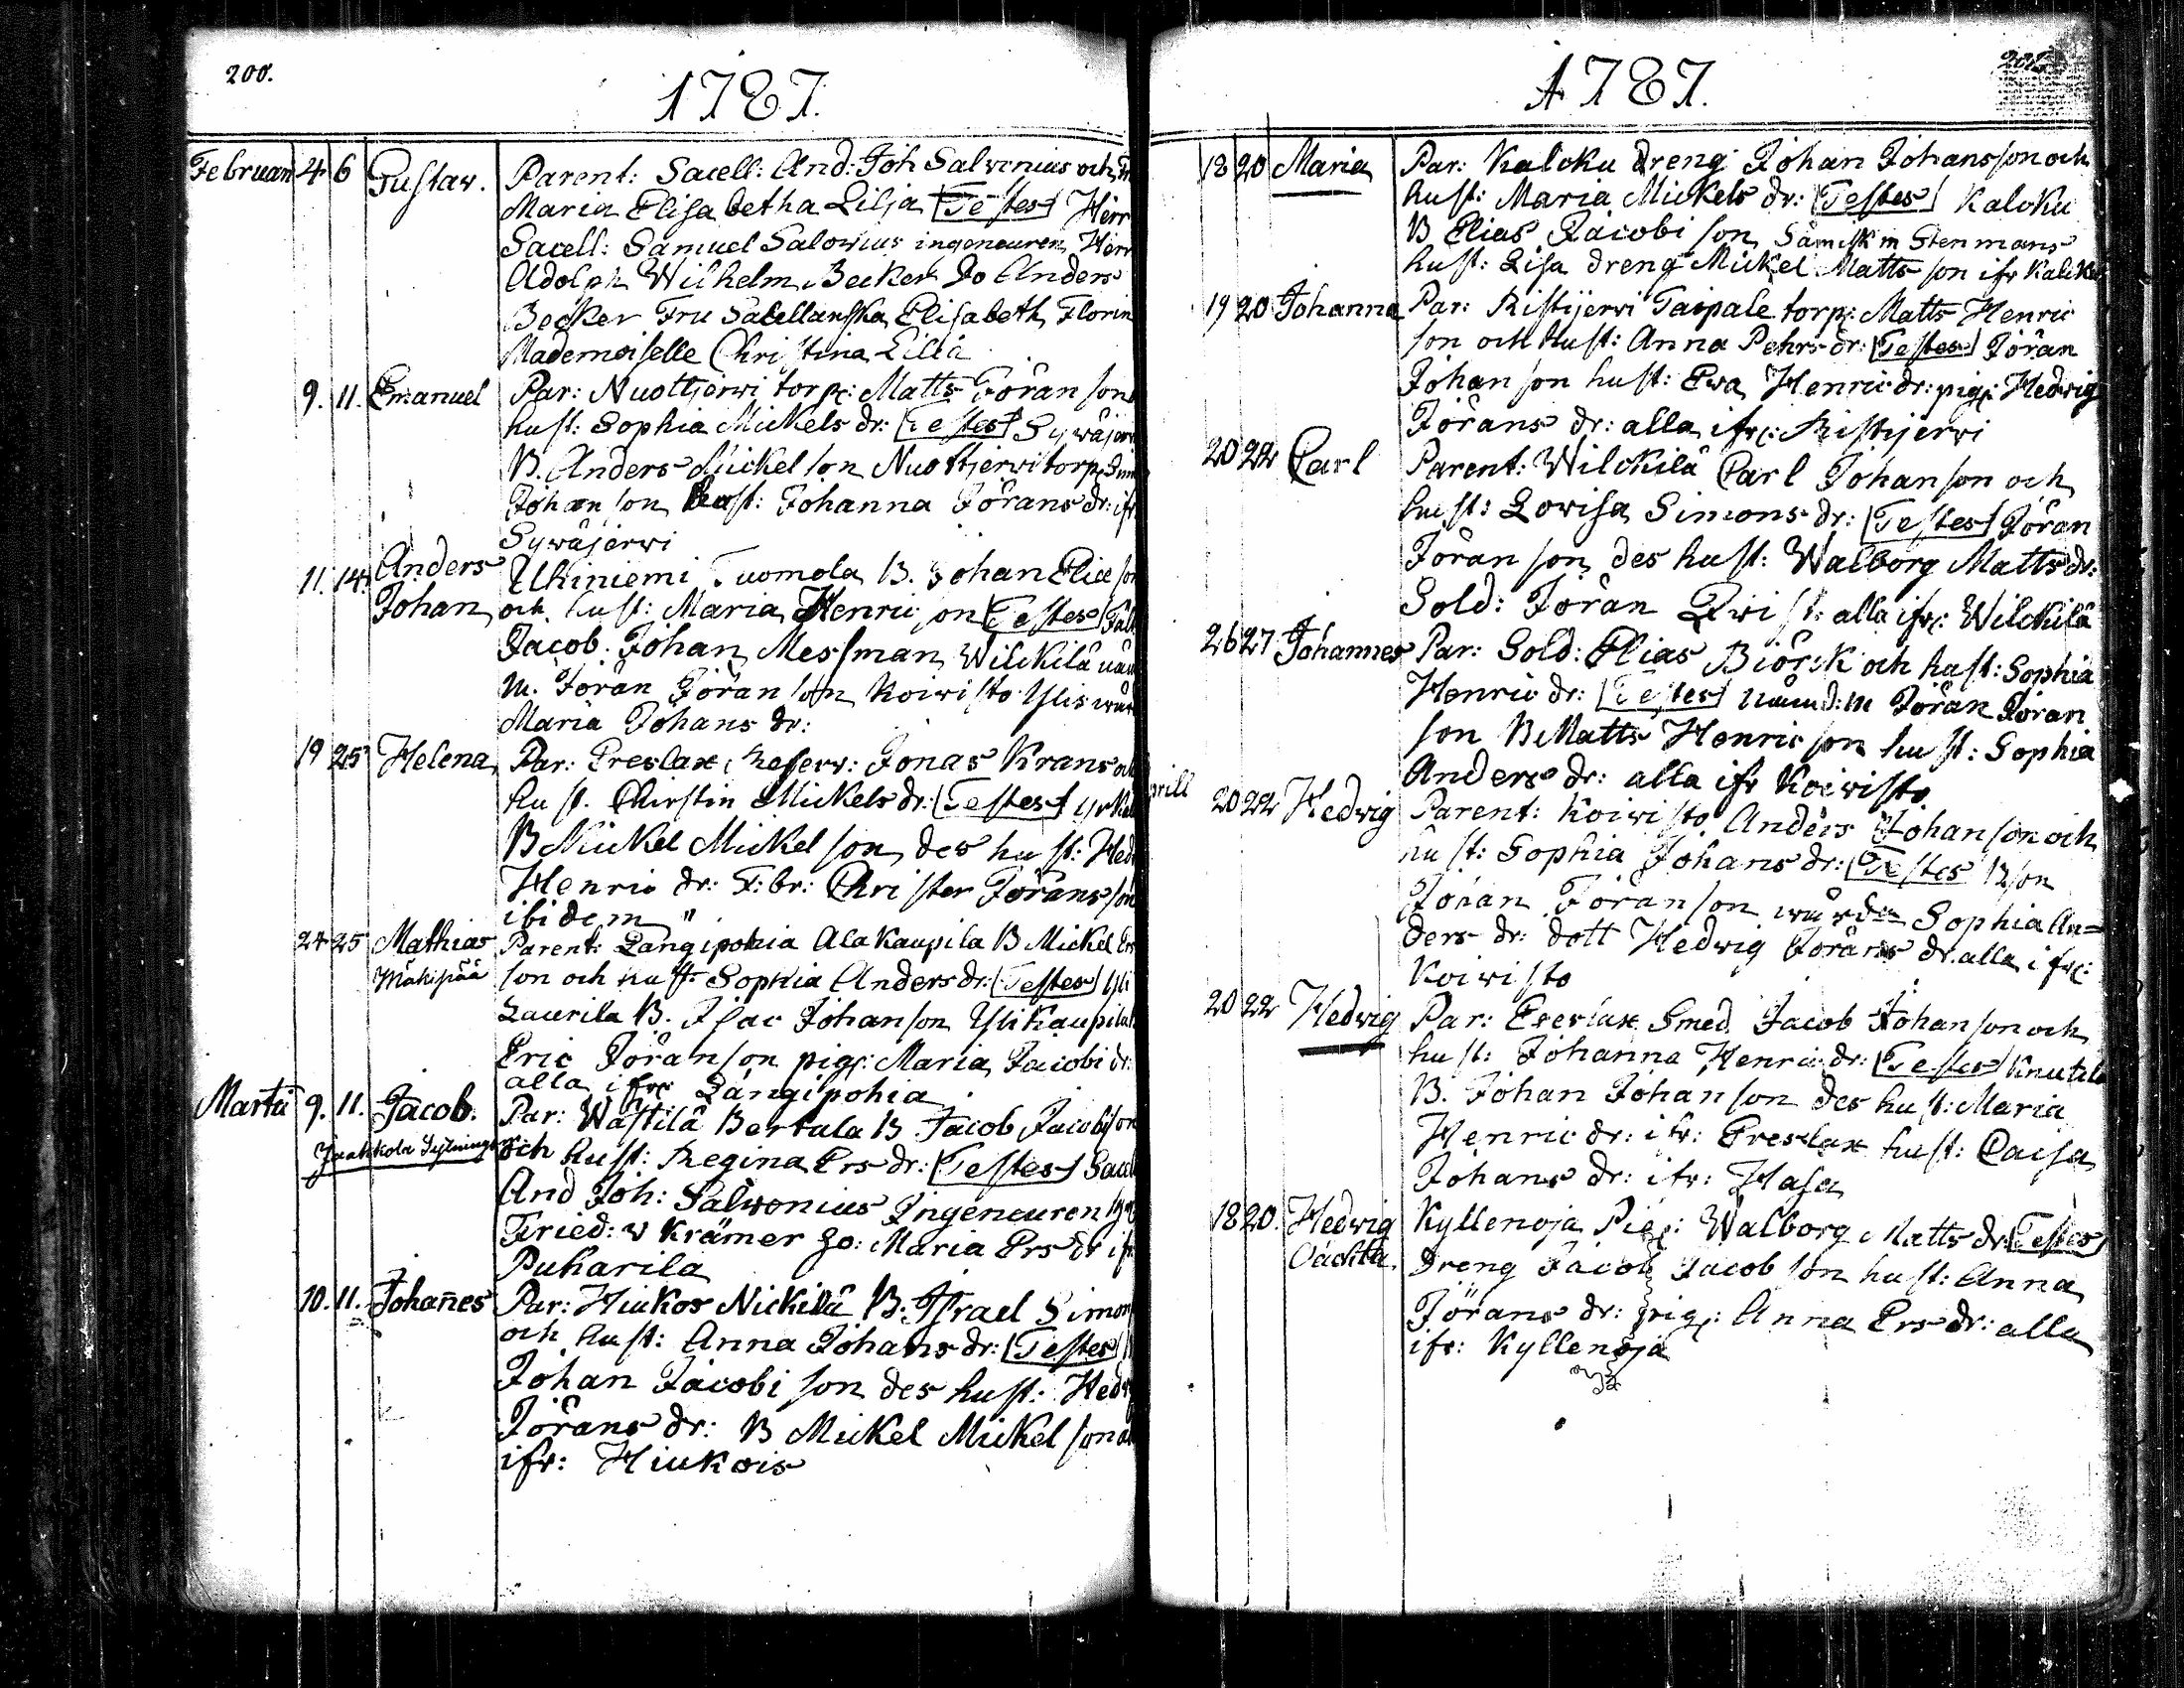 200.
1787.
Februari 4 6 Gustav. Parent: Sacell: And: Joh Salvenius och
Maria Elisabetha Lilja Testes Herr
Sacell: Samuel Salovius ingeneuren Herr
Adolph Wilhelm Becker Do Anders
Becker Fru Sacellanska Elisabeth Florin
Mademoiselle Christina Lilia
9. 11. Emanuel Par: Nuottjerwi torp: Matts Jöran son
hust: Sophia Mickels dr: Testes Sywäjerwi
B. Anders Mickel son Nuottjerwi torp:
Johan son hust: Johanna Jörans dr: ifr
Sywäjerwi
11. 14. Anders Uhiniemi Tuomola B. Johan Elie son
Johan och hust: Maria Henric son Testes
Jacob Johan Messman Wilckilä
m. Jöran Jöran son Koiwisto Ylis
Maria Johans dr:
19 25 Helena Par: Preslax reserv: Jonas Krans
hust. Chirstin Mickels dr: Testes
B Mickel Mickel son des hust: Hed
Henric dr: F: br: Christer Jörans son
ibidem "
24 25 Mathias Parent: Längipohia Ala Kaupila B Mickel Ers
Mäkipää son och hust: Sophia Anders dr: Testes Yli
Laurila B. Isac Johan son Yli Kaupila
Eric Jöran son pig: Maria Jacobi dr:
alla ifr: Längipohia
Martii 9. 11. Jacob. Par: Wästilä Bertula B Jacob Jacobi son
Jaakkola och hust: Regina Ers dr: Testes Sacell
And Joh: Salwenius Ingeneuren
Fried: v Krämer Jo: Maria Ers dr ifr
Puharila
10. 11. Johañes Par: Hiukos Nickilä B. Israel Simon
och hust: Anna Johans dr: Testes
Johan Jacobi son des hust: Hedw
Jörans dr: B Mickel Mickel son
ifr: Hiukois
1787.
18 20 Maria Par: Kalcku dreng Johan Johansson och
hust: Maria Mickels dr: Testes Kalcku
B Elias Jacobi son Stenmans
hust: Lisa dreng Mickel Matts son ifr Kalcku
19 20 Johanna Par: Ristijerwi Taipale torp: Matts Henric
son och hust: Anna Pehrs dr: Testes Jöran
Johan son hust: Ewa Henric dr: pig: Hedwig
Jörans dr: alla ifr: Ristijerwi
20 22 Carl Parent: Wilckilä Carl Johan son och
hust: Lovisa Simons dr: Testes Jöran
Jöran son des hust: Walborg Matts dr:
Sold: Jöran Qvist: alla ifr: Wilckilä
26 27 Johannes Par: Sold: Elias Biörck och hust: Sophia
Henric dr: Testes nämd: m Jöran Jöran
son B Matts Henric son hust: Sophia
Anders dr: alla ifr Koiwisto
prill 20 22 Hedwig Parent: Koiwisto Anders Johan son och
hust: Sophia Johans dr: Testes B son
Jöran Jöran son Sophia An=
ders dr: dott Hedwig Jörans dr. alla ifr:
Koiwisto
20 22 Hedwig Par: Preslax Smed Jacob Johan son och
hust: Johanna Henric dr: Testes Knutila
B. Johan Johan son des hust: Maria
Henric dr: ifr: Preslax hust: Caisa
Johans dr: ifr: Hasa
18 20. Hedwig Kyllenoja Pig: Walborg Matts dr: Testes
Oächta. Dreng Jacob Jacob son hust: Anna
Jörans dr: pig: Anna Ers dr: alla
ifr: Kyllenoja